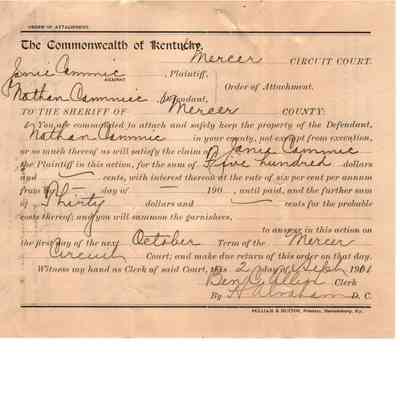 ORDER OF ATTACHMENT.
The Commonwealth of Kentucky,
Mercer CIRCUIT COURT.
Janie Cammic, Plaintiff,
AGAINST Order of Attachment.
Nathan Cammic, Defendant,
TO THE SHERIFF OF Mercer COUNTY:
You are commanded to attach and safely keep the property of the Defendant,
Nathan Cammic in your county, not exempt from execution,
or so much thereof as will satisfy the claim of Janie Cammic
the Plaintiff in this action, for the sum of Five hundred dollars
and — cents, with interest thereon at the rate of six per cent per annum
from the — day of — 190 , until paid, and the further sum
of Thirty dollars and — cents for the probable
costs thereof; and you will summon the garnishees,
to answer in this action on
the first day of the next October Term of the Mercer
Circuit Court; and make due return of this order on that day.
Witness my hand as Clerk of said Court, this 2 day of Sept 1901
Ben C. Allin Clerk
By H. Abraham D. C.